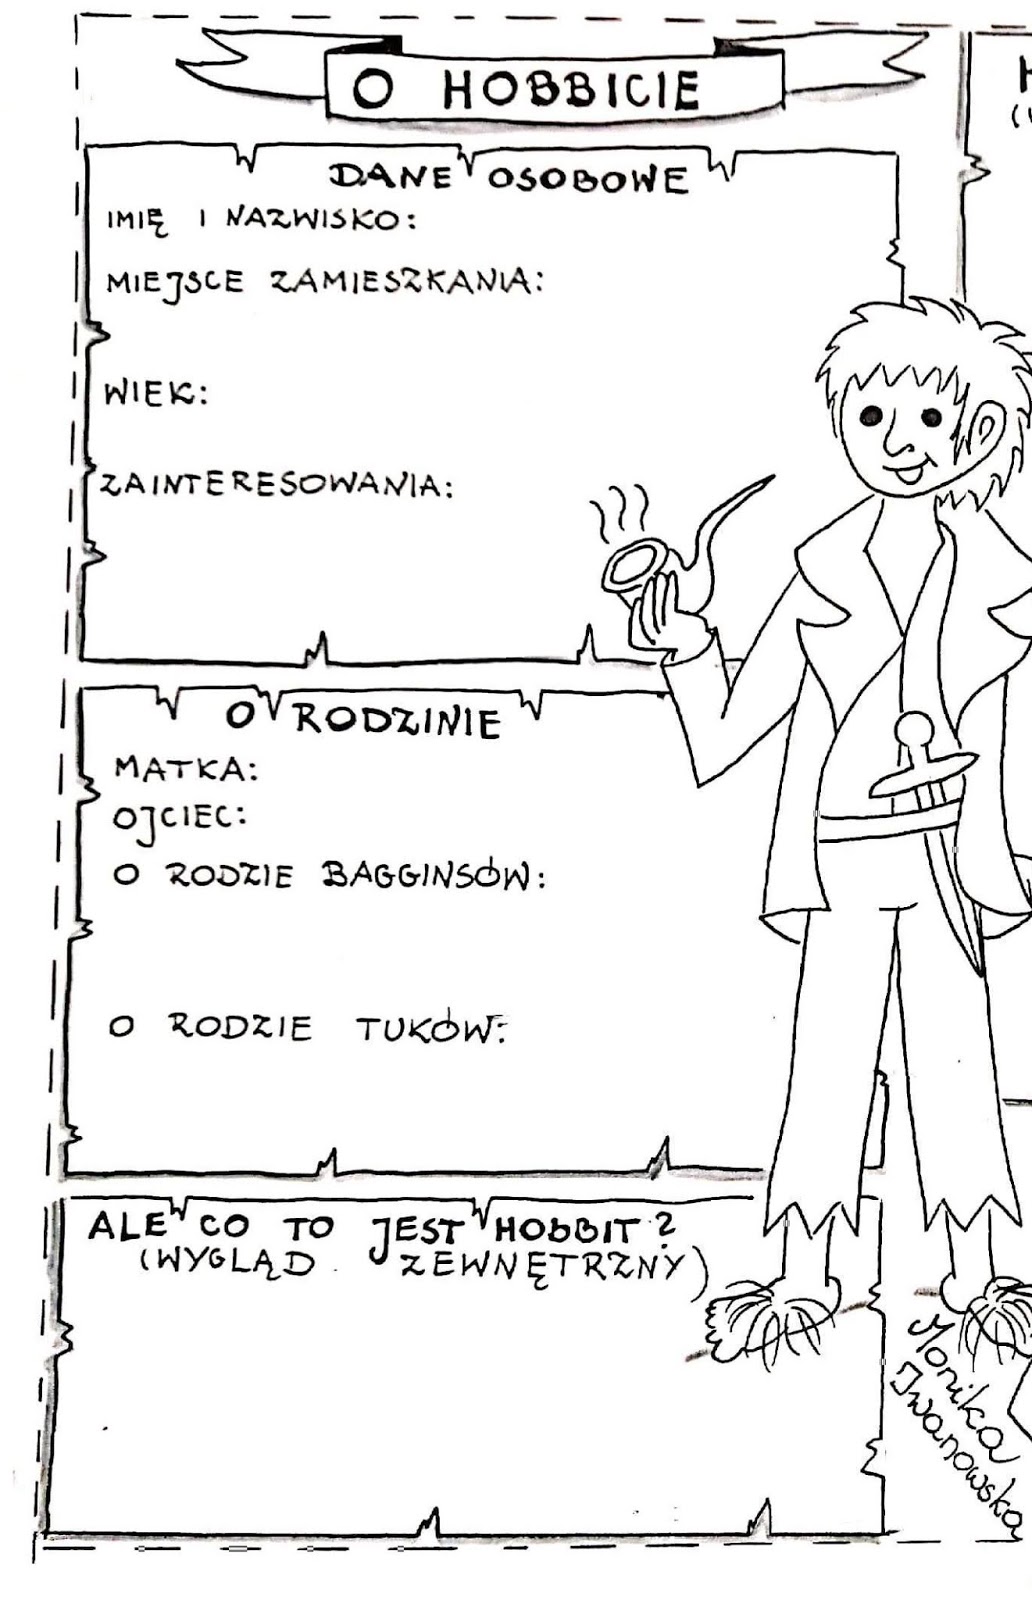 O HOBBICIE
DANE OSOBOWE
IMIĘ I NAZWISKO:
MIEJSCE ZAMIESZKANIA:
WIEK:
ZAINTERESOWANIA:
O RODZINIE
MATKA:
OJCIEC:
O RODZIE BAGGINSÓW:
O RODZIE TUKÓW:
ALE CO TO JEST HOBBIT?
(WYGLĄD ZEWNĘTRZNY)
Monika
Iwanowska